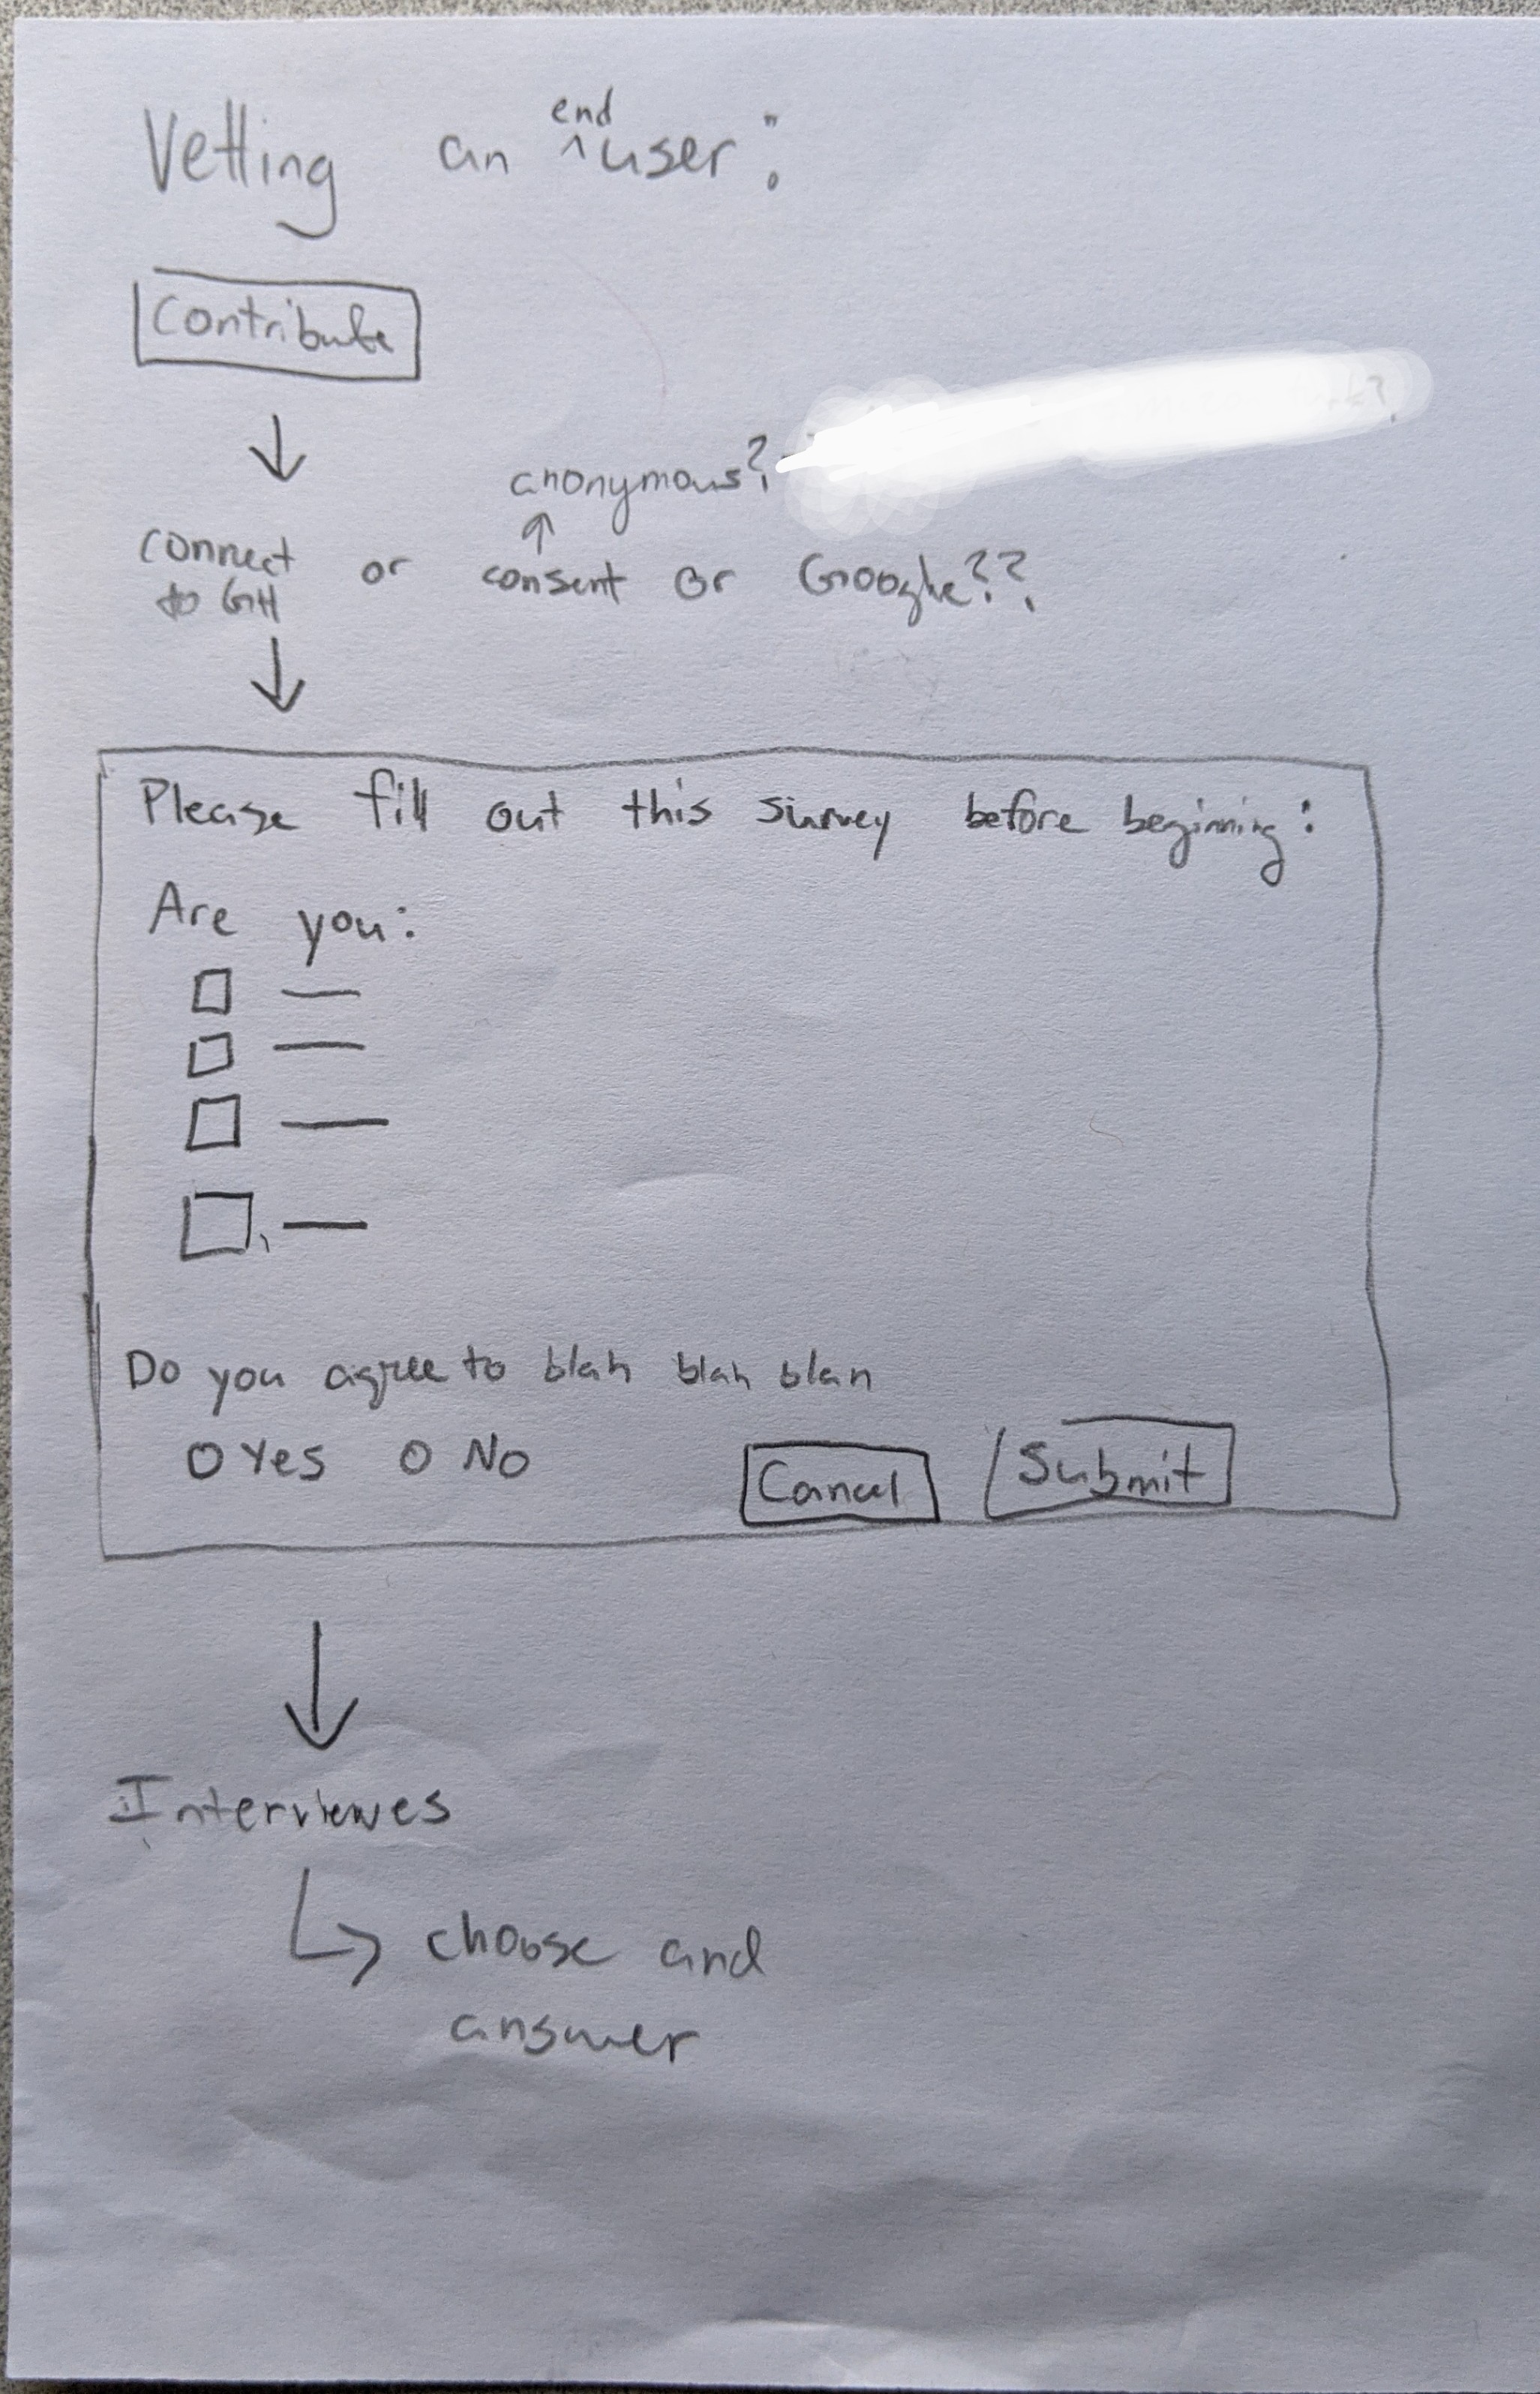 Vetting an ^end user:
Contribute
anonymous?
connect or consent or Google??
to GH
Please fill out this survey before beginning:
Are you:
Do you agree to blah blah blah
Yes No
Cancel Submit
Interviewes
choose and
answer